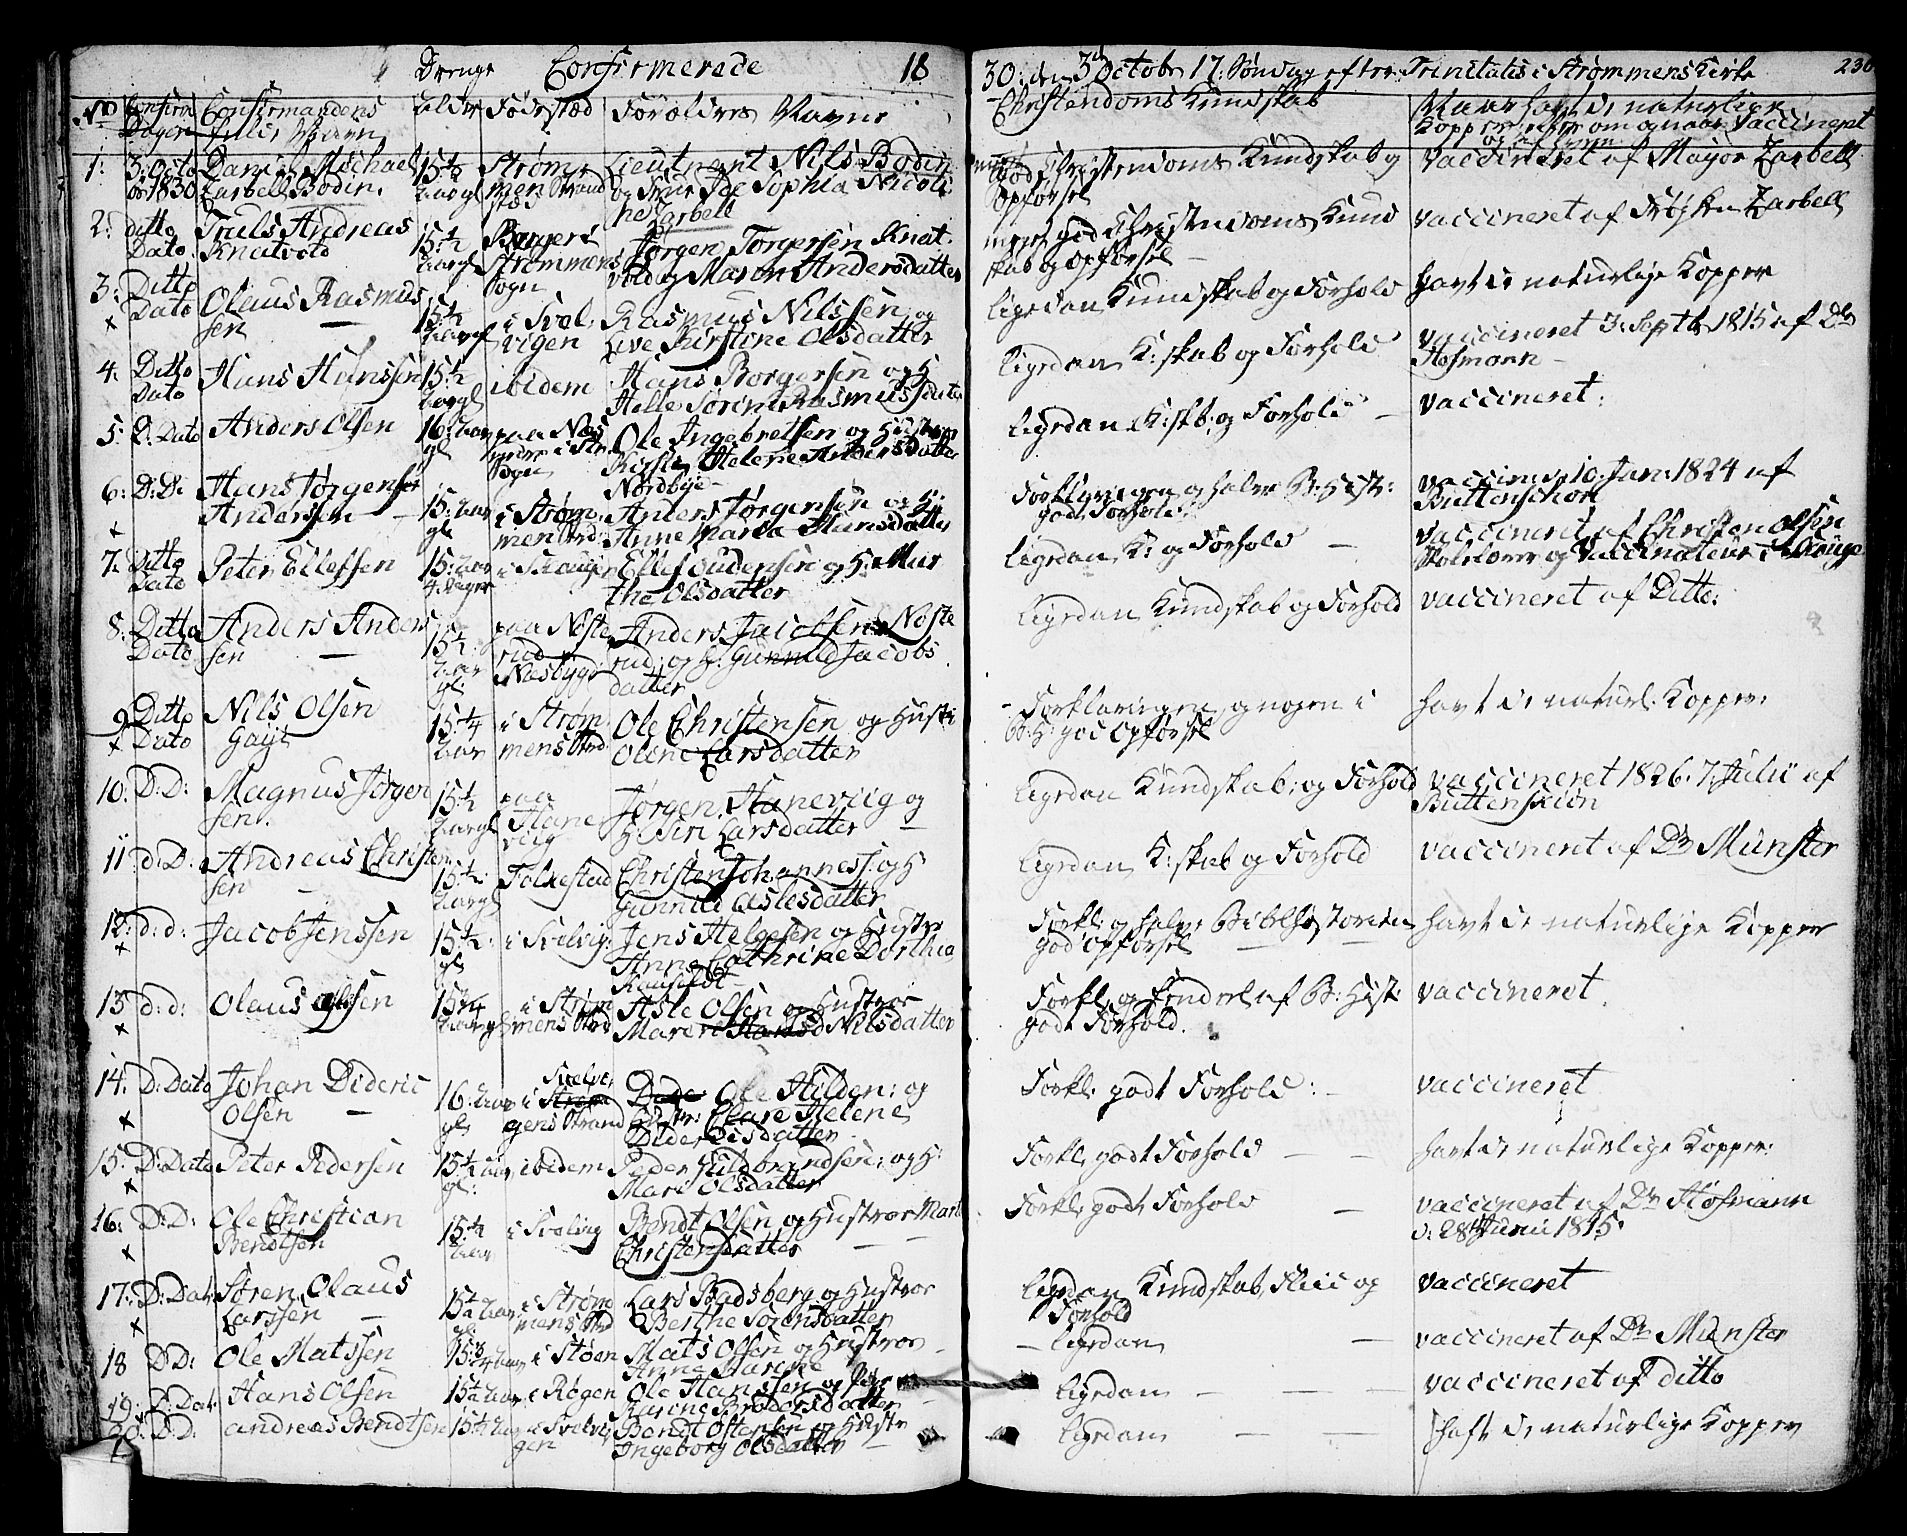 Drenge Confirmerede 18
30. den 3d October 17. Søndag efter Trinitatis i Strømmens Kirke 230
No Confirm Dagen
Confirmandens fulde Navn
Alder Fødested Forældres Navne
Christendoms Kundskab
Naar havt de naturlige
Kopper, eller om og naar vaccineret
og af hvem
1. 3. Octo br 1830 Daniel Michael Zarbell Bodin. 15 1/2 Aar gl Strømmen Strand sted Lieutnant Nils Bodin og Frue Ide Sophia Nicoline Zarbell
meget god Christendoms Kundskab og Opførsel
vaccineret af Major Zarbell
2. ditto Dato Truls Andreas Knatvold 15 1/2 Aar gl Bergers Strømmens Sogn Jørgen Torgersen Knatvold og Maren Andersdatter
meget god Christendoms Kundskab og Opførsel
vaccineret af Frøken Zarbell
3. Ditto Dato Olaus Rasmussen 15 1/2 Aar gl i Svelvigen Rasmus Nilssen og Live Kirstine Olsdatter
ligedan Kundskab og Forhold
havt de naturlige Kopper
4. Ditto Dato Hans Hanssen 15 1/2 Aar gl ibidem Hans Borgersen og H Helle Sørine Rasmusdatter
ligedan K:skab og Forhold
vaccineret 3. Septb 1815 af Dr Hofmann
5. D: Dato Anders Olsen 16 Aar gl paa Næs i Str Sogn Ole Ingebretsen og Hustroe Kirsti Helene Andersdatter Nordbye
ligedan K:skb. og Forhold
vaccineret:
6. D: D: Hans Jørgensen Anderssen 15 Aar gl i Strømmen Strd: Anders Jørgensen og H: Anne Maria Hansdatter
Forklaringen og halve B: Hist: godt Forhold.
vaccin: d. 10. Jan: 1824 af Buttenschøn
7. Ditto Dato Peter Ellefsen 15 Aar i Skauger Ellef Gudensen og H: Marthe Olsdatter
ligedan K: og Forhold
vaccineret af Christen Olsen
Skolelærer og Vaccinateur i Skouge
8. Ditto Dato Anders Anderssen 15 1/2 Aar gl. paa Nøsterud Næsbygd Anders Jacobsen Nøsterud og H: Gunnild Jacobsdatter
ligedan Kundskab og Forhold
vaccineret af Ditto:
9 Ditto Dato Nils Olsen 15 1/4 Aar i Strømmens Strd. Ole Christensen og Hustr Olene Larsdatter
Forklaringen og nogen i B: H: god Opførsel
havt de naturl. Kopper:
10. D: D: Magnus Jørgensen. 15 1/2 Aar gl paa Hanevig Jørgen Hanevig og H Siri Larsdatter
ligedan Kundskab og Forhold
vaccineret 1826. 7 Julii af Buttenschiøn
11 d: D: Andreas Christensen 15 1/2 Aar gl Folkestad Christen Johanness: og H Gunnild Aslesdatter
ligedan K:skab og Forhold
vaccineret af Dr Münster
12. d: d: Jacob Jenssen 15 1/2 gl i Svelvig: Jens Helgesen og Hustro Anne Cathrine Dorthea
Forkl: og halve Biblhistorien god Opførsel
havt de naturlige Kopper
13 d: d: Olaus Olsen 15 3/4 Aar gl i Strømmens Strd Asle Olsen og Hustroe Maren Nilsdatter
Forkl. og Endeel af B: Hist: godt Forhold.
vaccineret.
14. D: Dato Johan Dideric Olsen 16 Aar gl. i Svelvigens Strand Ole Hilden: og Hustr: Clare Helene Didericsdatter
Forkl: godt Forhold:
vaccineret
15. D: Dato Peter Pedersen 15 1/2 Aar gl: ibidem Peder Hildbrandsen: og H: Mari Olsdatter
Forkl: godt Forhold
havt de naturlige Kopper:
16: D: D: Ole Christian Bendtsen 15 1/2 Aar i Svelvig Bendt Olsen og Hustroe Marte Christensdatter
Forkl: godt Forhold
vaccineret af Dr Hofmann d: 28 Junii 1815
17: D: Dat Søren Olaus Larssen 15 1/2 Aar gl i Strømmens Strd Lars Badsberg og Hustroe Berthe Sørensdatter
ligedan Kundskab, Fliid og Forhold
vaccineret
18 D D: Ole Matssen 15 3/4 Aar i Støen Mats Olsen og Hustroe Anne Marthe
ligedan
vaccineret af Dr Münster
19. D: Dat Hans Olsen 15 1/2 Aar i Røgen Ole Hanssen og Karine Brodersdatter
ligedan
vaccineret af ditto
20. D: D: Andreas Bendtsen 15 1/2 Aar i Svelvigen Bendt Ostensen og Hustr Ingeborg Olsdatter
ligedan
haft de naturlige Kopper